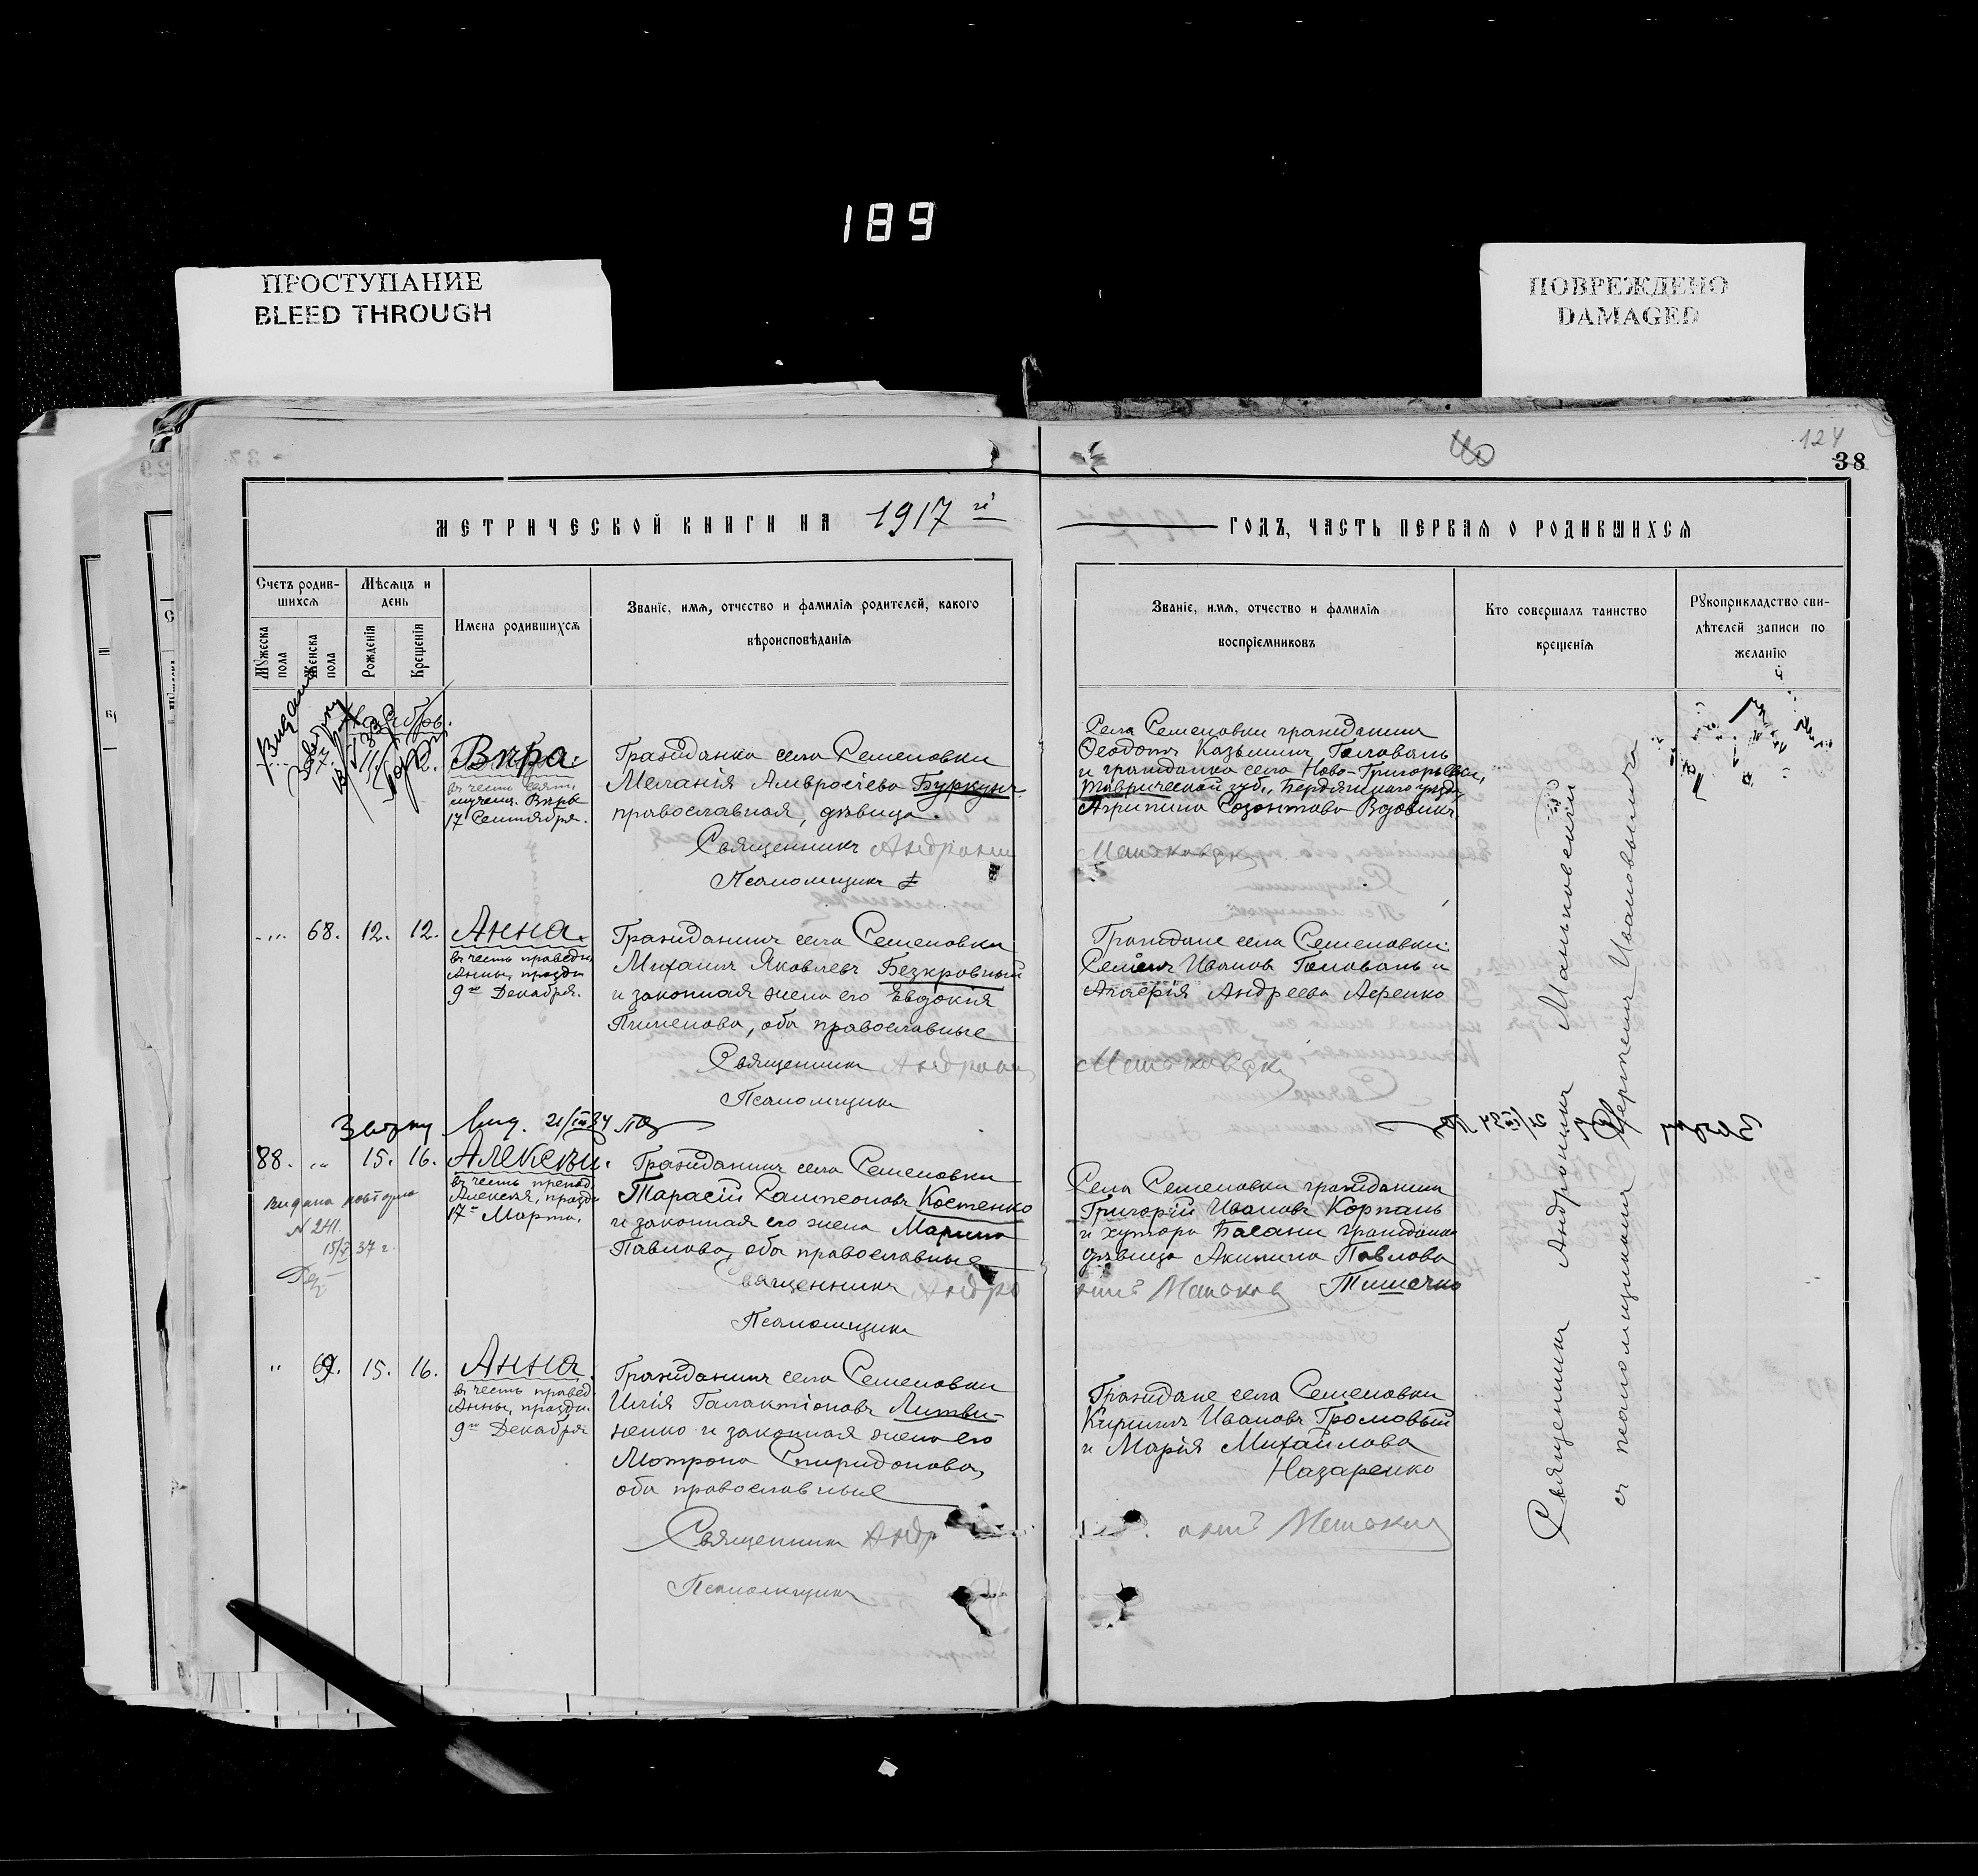 189
ПРОСТУПАНИЕ
BLEED THROUGH
ПОВРЕЖДЕНО
DAMAGED
40
124
38
МЕТРИЧЕСКОЙ КНИГИ НА 1917 й
ГОДЪ, ЧАСТЬ ПЕРВАЯ О РОДИВШИХСЯ
Счетъ родив-
шихся
Мужеска пола
Женска пола
Мѣсяцъ и
день
Рожденія
Крещенія
Имена родившихся
Званіе, имя, отчество и фамилія родителей, какого
вѣроисповѣданія
Званіе, имя, отчество и фамилія
воспріемниковъ
Кто совершалъ таинство
крещенія
Рукоприкладство сви-
дѣтелей записи по
желанію
Ноябрь.
67. 11. 12. Вѣра.
въ честь свят.
мучен. Вѣры
17 Сентября.
Гражданка села Семеновки
Меланія Амвросіева Буркунъ
православная, дѣвица.
Священникъ Андроникъ
Псаломщикъ
Села Семеновки гражданинъ
Ѳеодотъ Казьминъ Головань
и гражданка села Ново-Григорьевки,
Таврической губ., Бердянскаго уѣзда,
Агрипина Созонтова Вдовикъ
Маньковскій
68. 12. 12. Анна.
въ честь правед.
Анны, праздн.
9го Декабря.
Гражданинъ села Семеновки
Михаилъ Яковлевъ Безкровный
и законная жена его Евдокія
Пименова, оба православные
Священникъ Андроникъ
Псаломщикъ
Граждане села Семеновки:
Семенъ Ивановъ Головань и
Андреева
Маньковскій
вид. 21/III 34
88. " 15. 16. Алексѣй.
въ честь препод.
Алексія, праздн.
17го Марта.
видана повторно
N 241.
15/X 37 г.
Гражданинъ села Семеновки
Тарасій Сампсоновъ Костенко
и законная его жена Марина
Павлова, оба православные
Священникъ Андро
Псаломщикъ
Села Семеновки гражданинъ
Григорій Ивановъ Корпань
и хутора Басани гражданка
дѣвица Акилина Павлова
Тишечко
никъ Маньков
" 69. 15. 16. Анна.
въ честь правед.
Анны, праздн.
9го Декабря
Гражданинъ села Семеновки
Илія Галактіоновъ Литви-
ненко и законная жена его
Мотрона Спиридонова,
оба православные
Священникъ Андр
Псаломщикъ
Граждане села Семеновки
Кириллъ Ивановъ Громовый
и Марія Михайлова
Назаренко
никъ Маньков
Священникъ Андроникъ Маньковскій
съ псаломщикомъ Ивановымъ